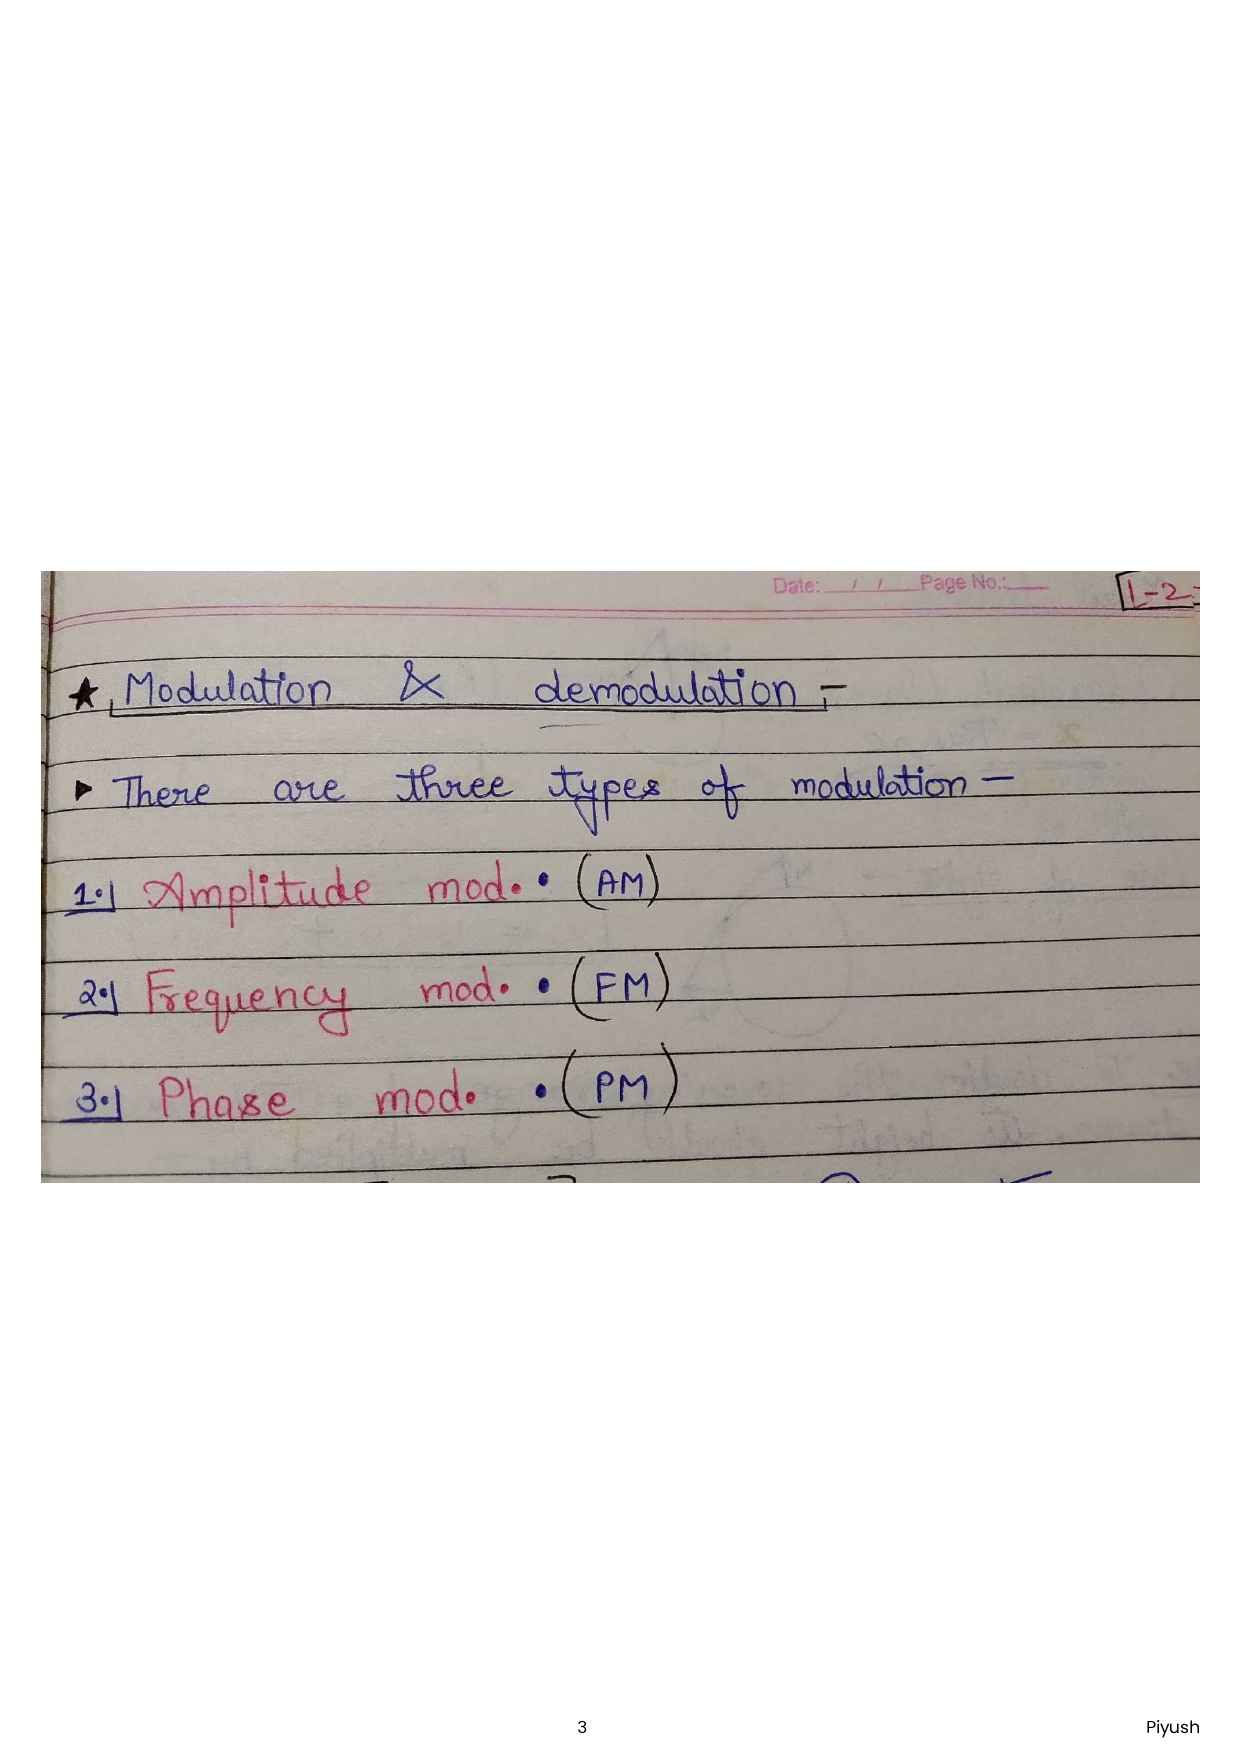 Date: __/__/__ Page No.:____ L-2
★ Modulation & demodulation :-
▶ There are three types of modulation —
1.) Amplitude mod. • (AM)
2.) Frequency mod. • (FM)
3.) Phase mod. • (PM)
3 Piyush